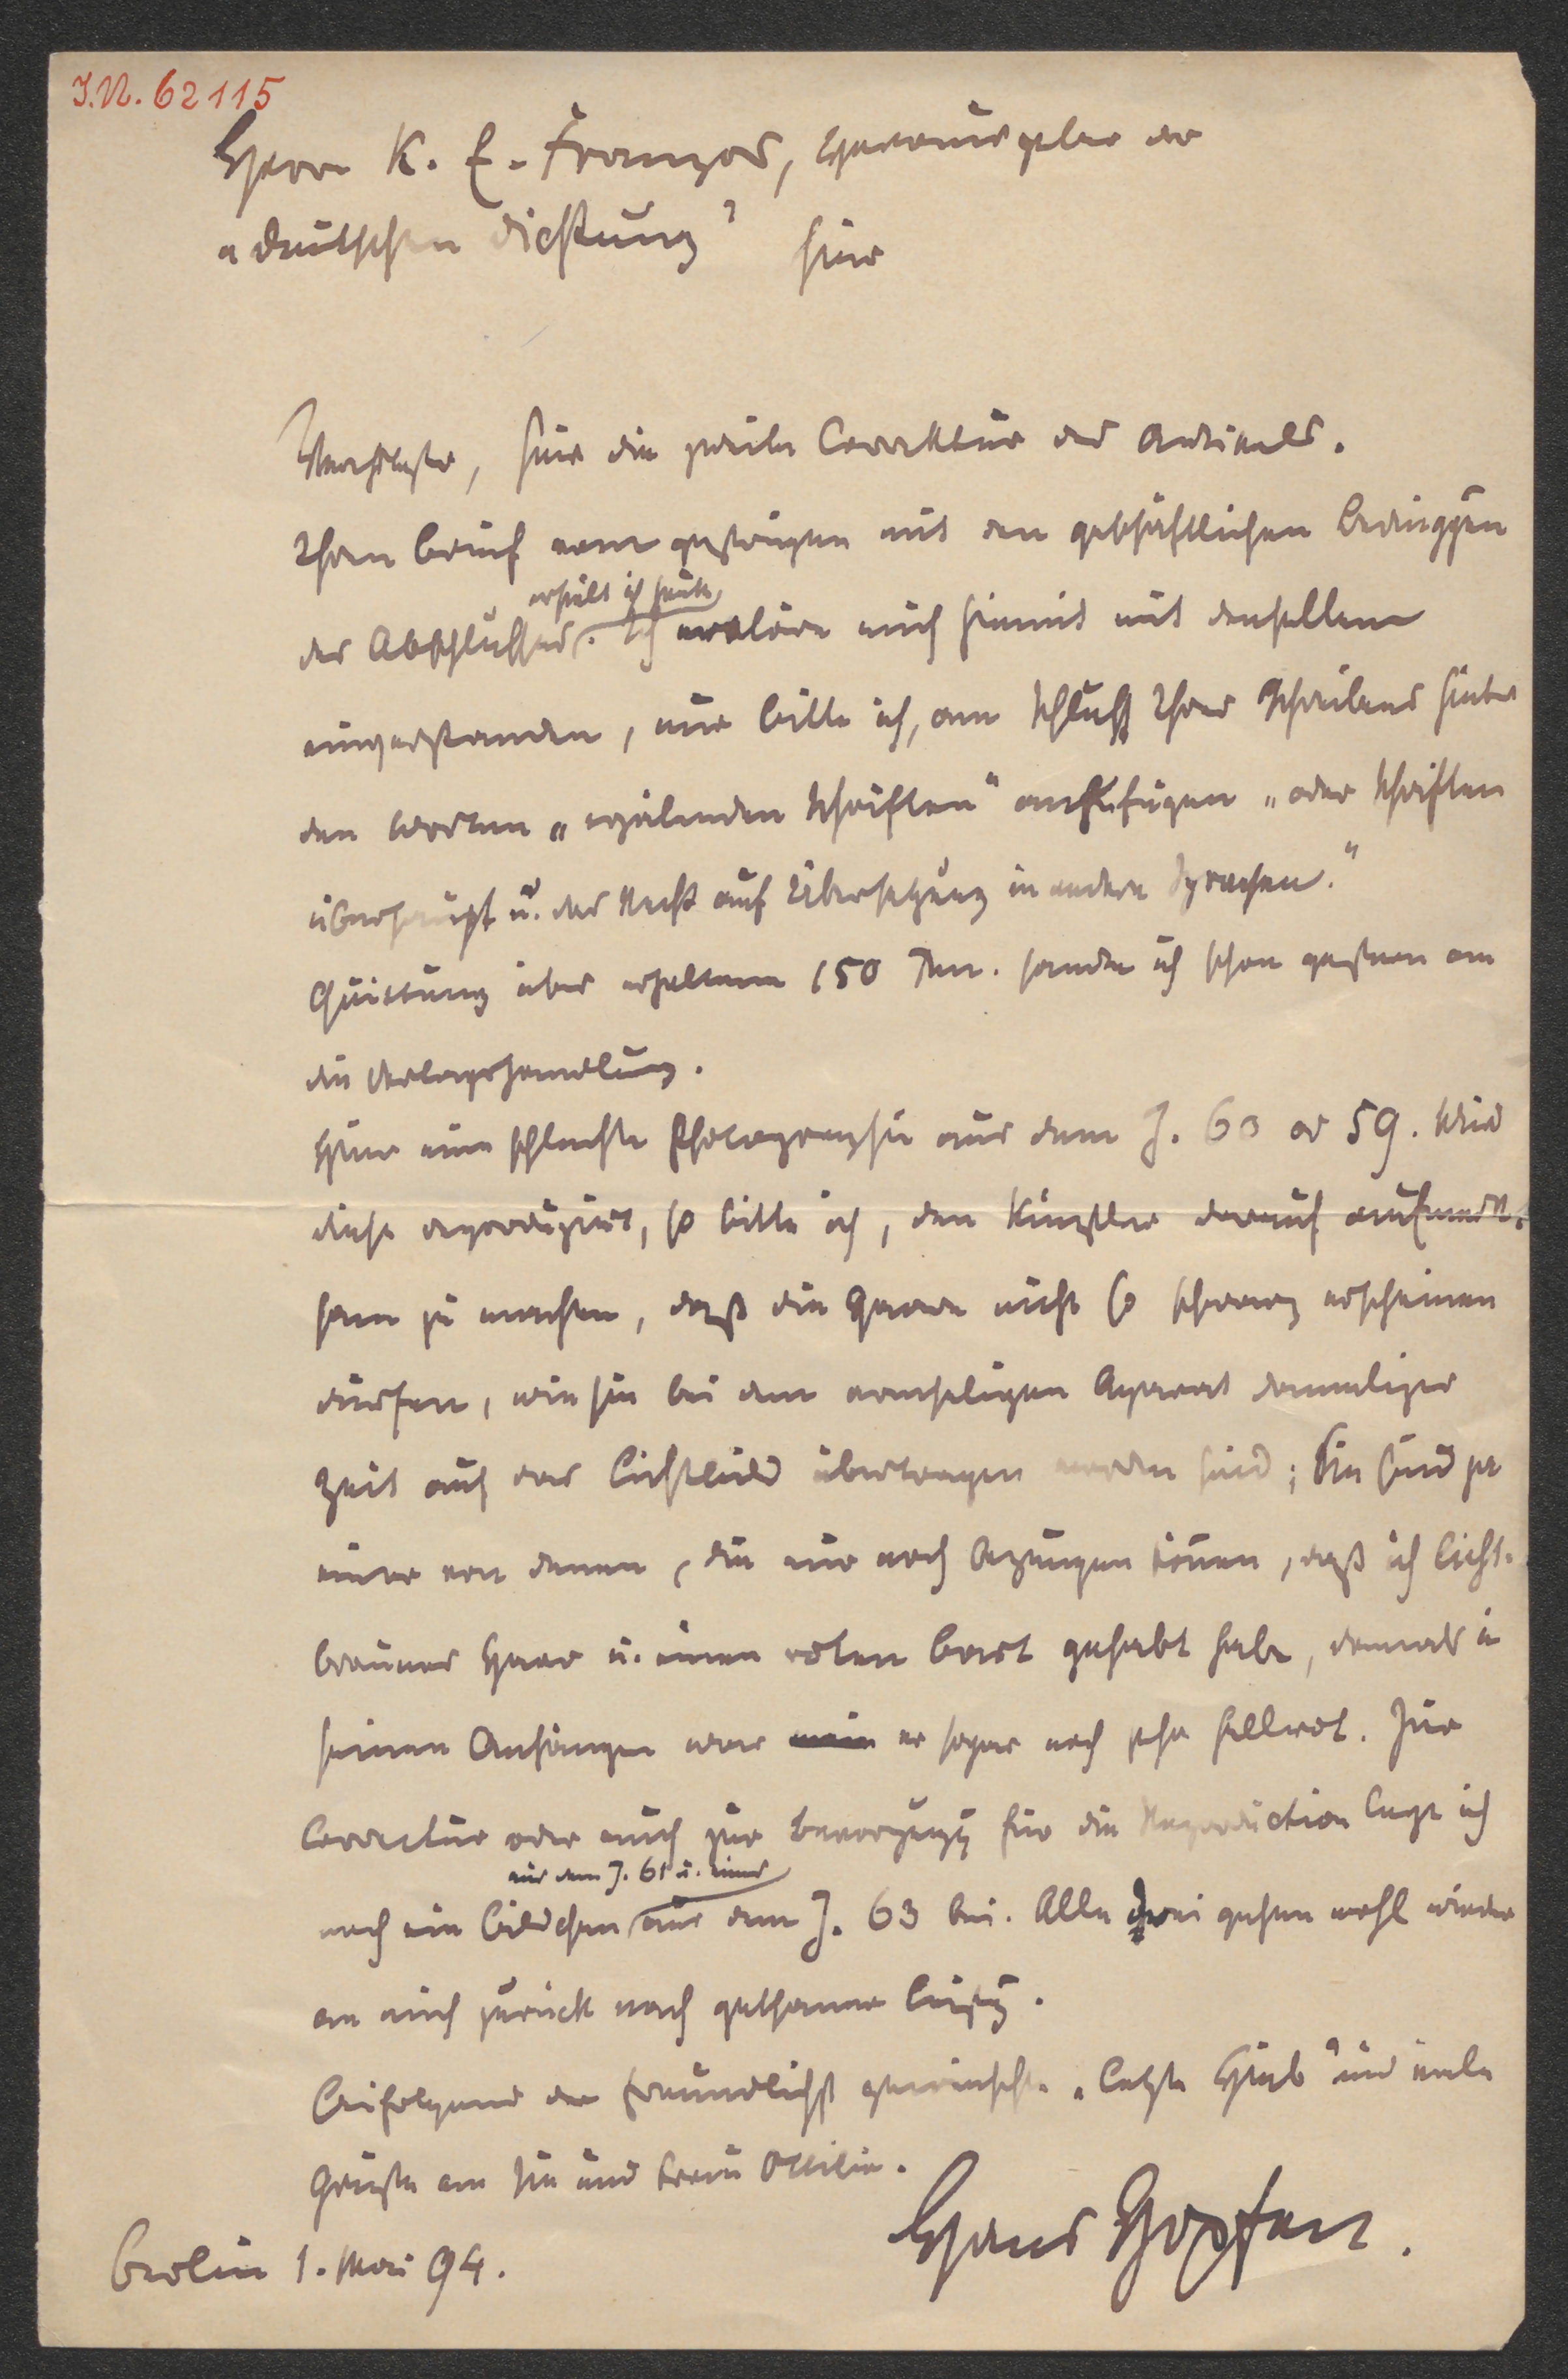 I.N. 62115
Herrn K. E. Franzos, Herausgeber der
„Deutschen Dichtung" hier
Verehrtester, hier die zweite Correktur des Artikels.
Ihren Brief vom gestrigen mit den geschäftlichen Bedinggen
erhielt ich heute
des Abschlußes. Ich erkläre mich hiemit mit denselben
einverstanden, nur bitte ich, am Schluß Ihres Schreibens hinter
den Worten „erzälenden Schriften" anzufügen „oder Schriften
überhaupt u. das Recht auf Übersetzung in andere Sprachen."
Quittung über erhaltene 150 Rm. sandte ich schon gestern an
die Verlagshandlung.
Hier eine schlechte Photographie aus dem J. 60 od 59. Wird
diese reproduzirt, so bitte ich, den Künstler darauf aufmerk-
sam zu machen, daß die Haare nicht so schwarz erscheinen
dürfen, wie sie bei dem armseligen Aparat damaliger
Zeit auf das Lichtbild übertragen worden sind; Sie sind ja
einer von denen, die nur noch bezeugen können, daß ich licht-
braunes Haar u. einen roten Bart gehabt habe, damals in
seinen Anfängen war er sogar noch sehr hellrot. Zur
Correctur oder auch zur Bevorzugg für die Reproduction lege ich
aus dem J. 61 u. eines
noch ein Bildchen aus dem J. 63 bei. Alle drei gehen wohl wieder
an mich zurück nach gethaner Leistg.
Beifolgend der freundlichst gewünschte „letzte Hieb" und viele
Grüße an Sie und Frau Ottilie.
Hans Hopfen.
Berlin 1. Mai 94.